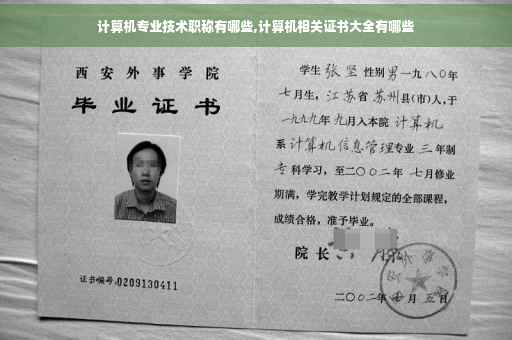 计算机专业技术职称有哪些,计算机相关证书大全有哪些
西安外事学院
毕业证书
证书编号:0209130411
学生 张坚 性别 男 一九八〇年
七月生, 江苏省 苏州县(市)人,于
一九九九年 九月入本院 计算机
系 计算机信息管理专业 三 年制
专 科学习, 至二〇〇二年 七月修业
期满, 学完教学计划规定的全部课程,
成绩合格, 准予毕业。
院长
二〇〇二年 月 五日